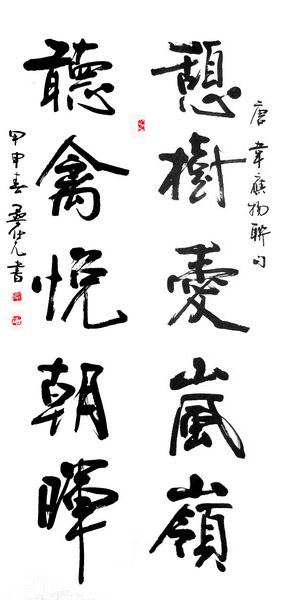 唐韋應物聯句
憩樹愛嵐嶺
聽禽悦朝暉
甲申春書